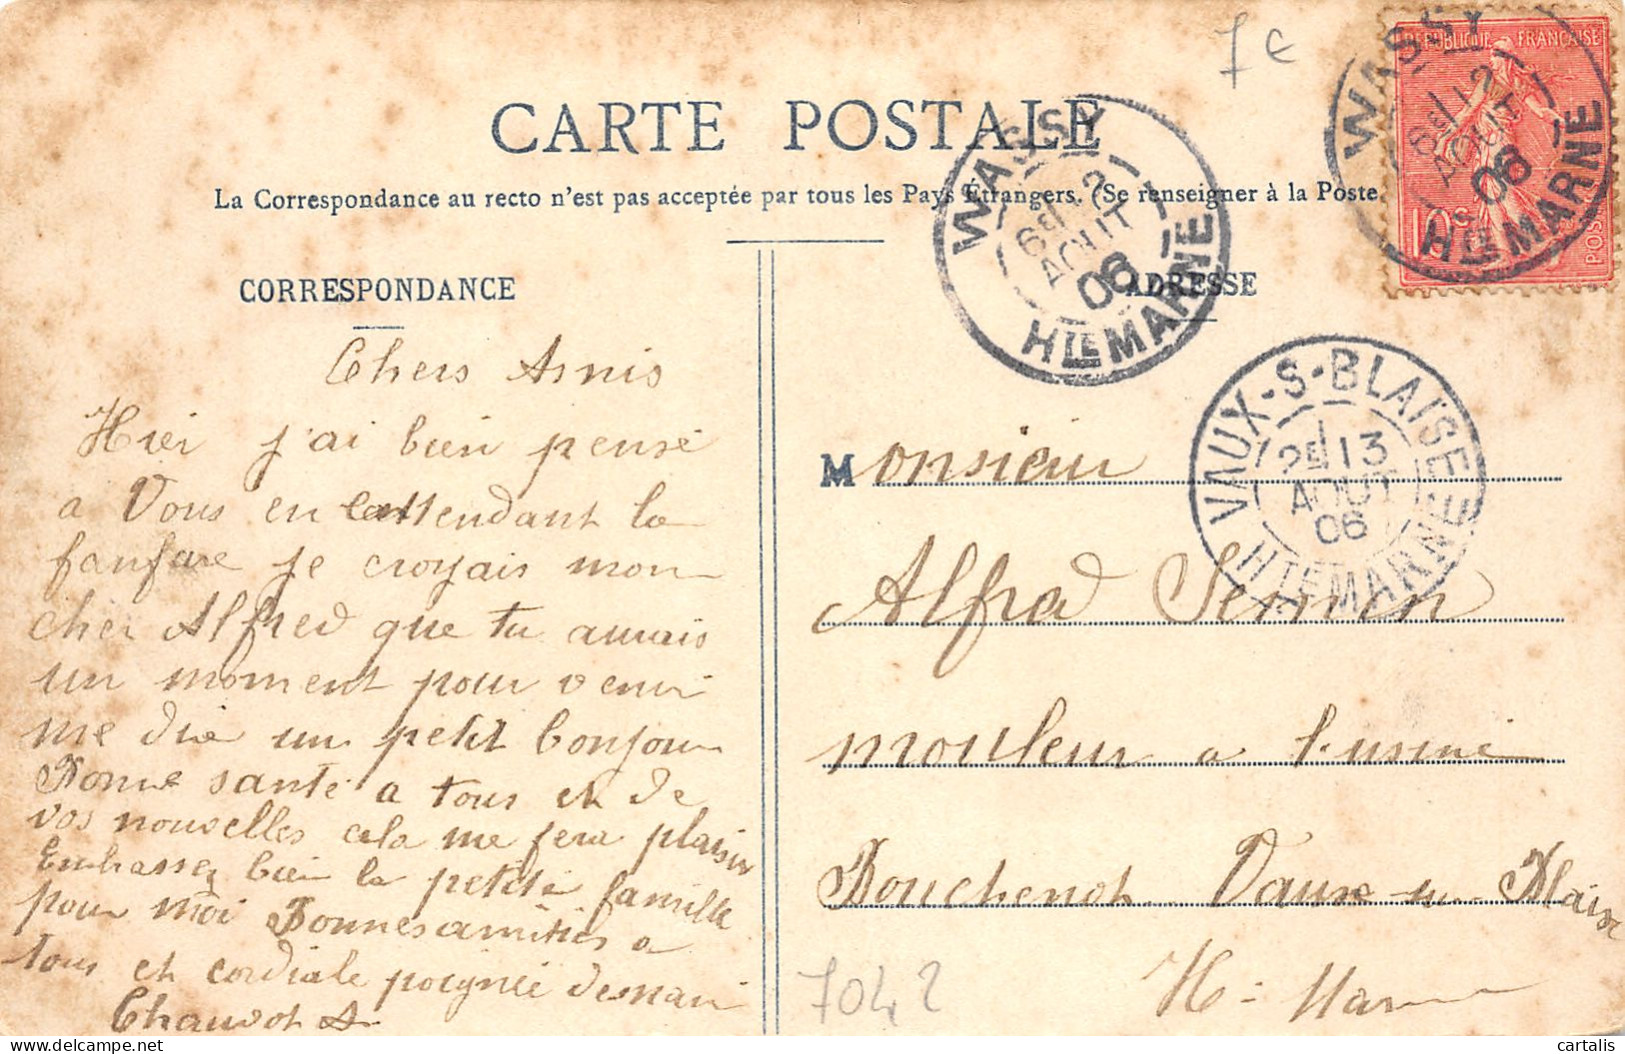 7 €
RÉPUBLIQUE FRANÇAISE
10c
POSTES
WASSY
6E 12
AOUT
06
HTE MARNE
CARTE POSTALE
WASSY
6E 12
AOUT
06
HTE MARNE
La Correspondance au recto n'est pas acceptée par tous les Pays Étrangers. (Se renseigner à la Poste
CORRESPONDANCE
Chers Amis
Hier j'ai bien pensé
a Vous en attendant la
fanfare je croyais mon
cher Alfred que tu aurais
un moment pour venir
me dire un petit bonjour
Bonne santé a tous et de
vos nouvelles cela me fera plaisir
Embrassez bien la petite famille
pour moi Bonnes amitiés a
tous et cordiale poignée demain
Chauvot A.
ADRESSE
VAUX-S-BLAISE
2E 13
AOUT
06
HTE MARNE
Monsieur
Alfred
mouleur a l'usine
Bouchenot Vaux sur Blaise
H-Marne
7042
cartalis
delcampe.net